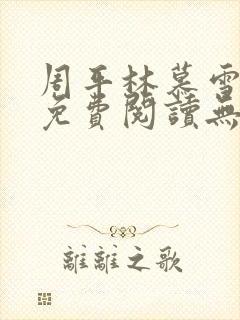 周平林慕雪
免費閱讀無
離離之歌